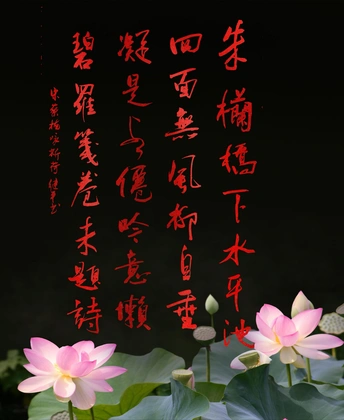 朱欄橋下水平池
四面無風柳自垂
凝是僊吟意懶
碧羅箋卷未題詩